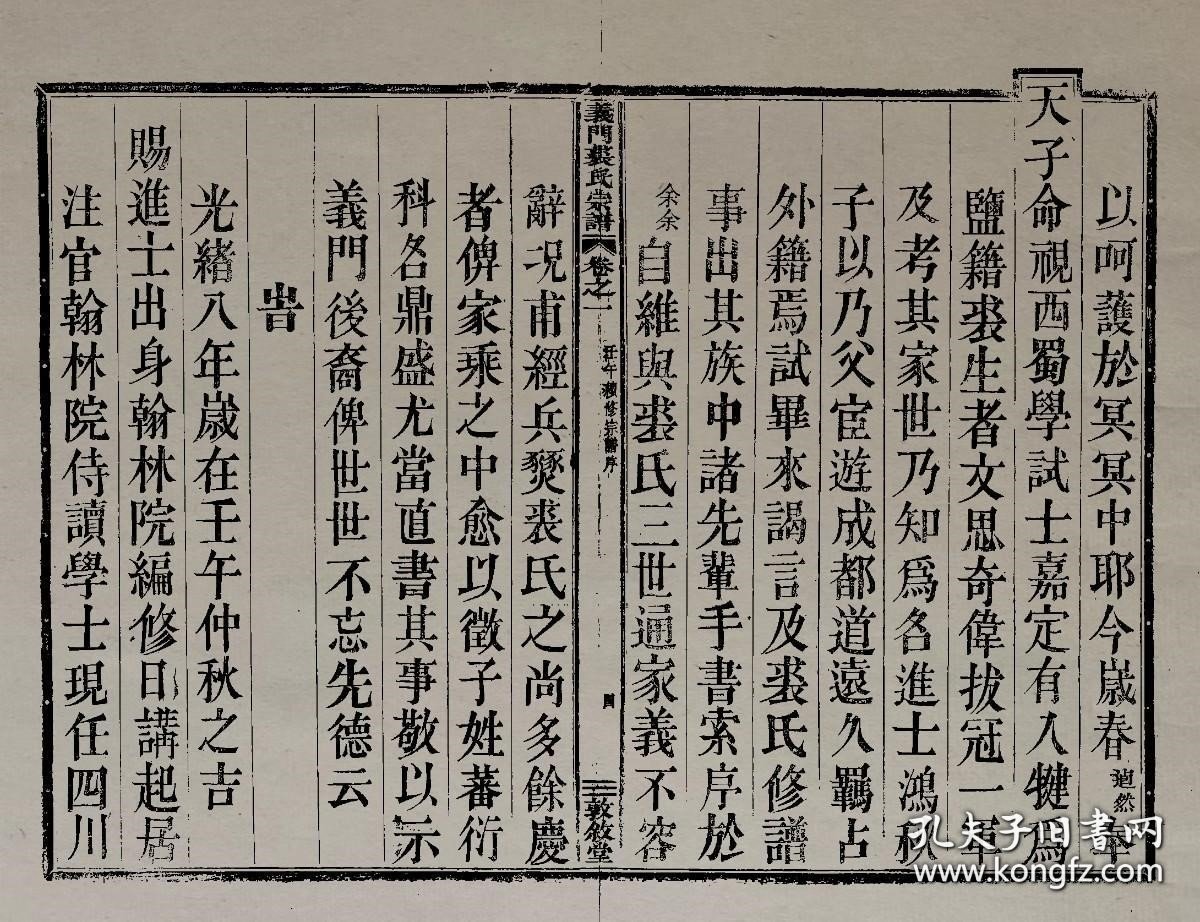 以呵護於冥冥中耶今嵗春逌然奉
天子命視西蜀學試士嘉定有入犍爲
鹽籍裘生者文思奇偉拔冠一軍
及考其家世乃知爲名進士鴻秋
子以乃父宦遊成都道遠久羈占
外籍焉試畢來謁言及裘氏修譜
事出其族中諸先輩手書索序於
余余自維與裘氏三世通家義不容
義門裘氏宗譜 卷之一 壬午續修宗譜序 四 敦敘堂
辭況甫經兵燹裘氏之尚多餘慶
者俾家乘之中愈以徵子姓蕃衍
科名鼎盛尤當直書其事敬以示
義門後裔俾世世不忘先德云
旹
光緒八年嵗在壬午仲秋之吉
賜進士出身翰林院編修日講起居
注官翰林院侍讀學士現任四川
孔夫子旧書网
www.kongfz.com